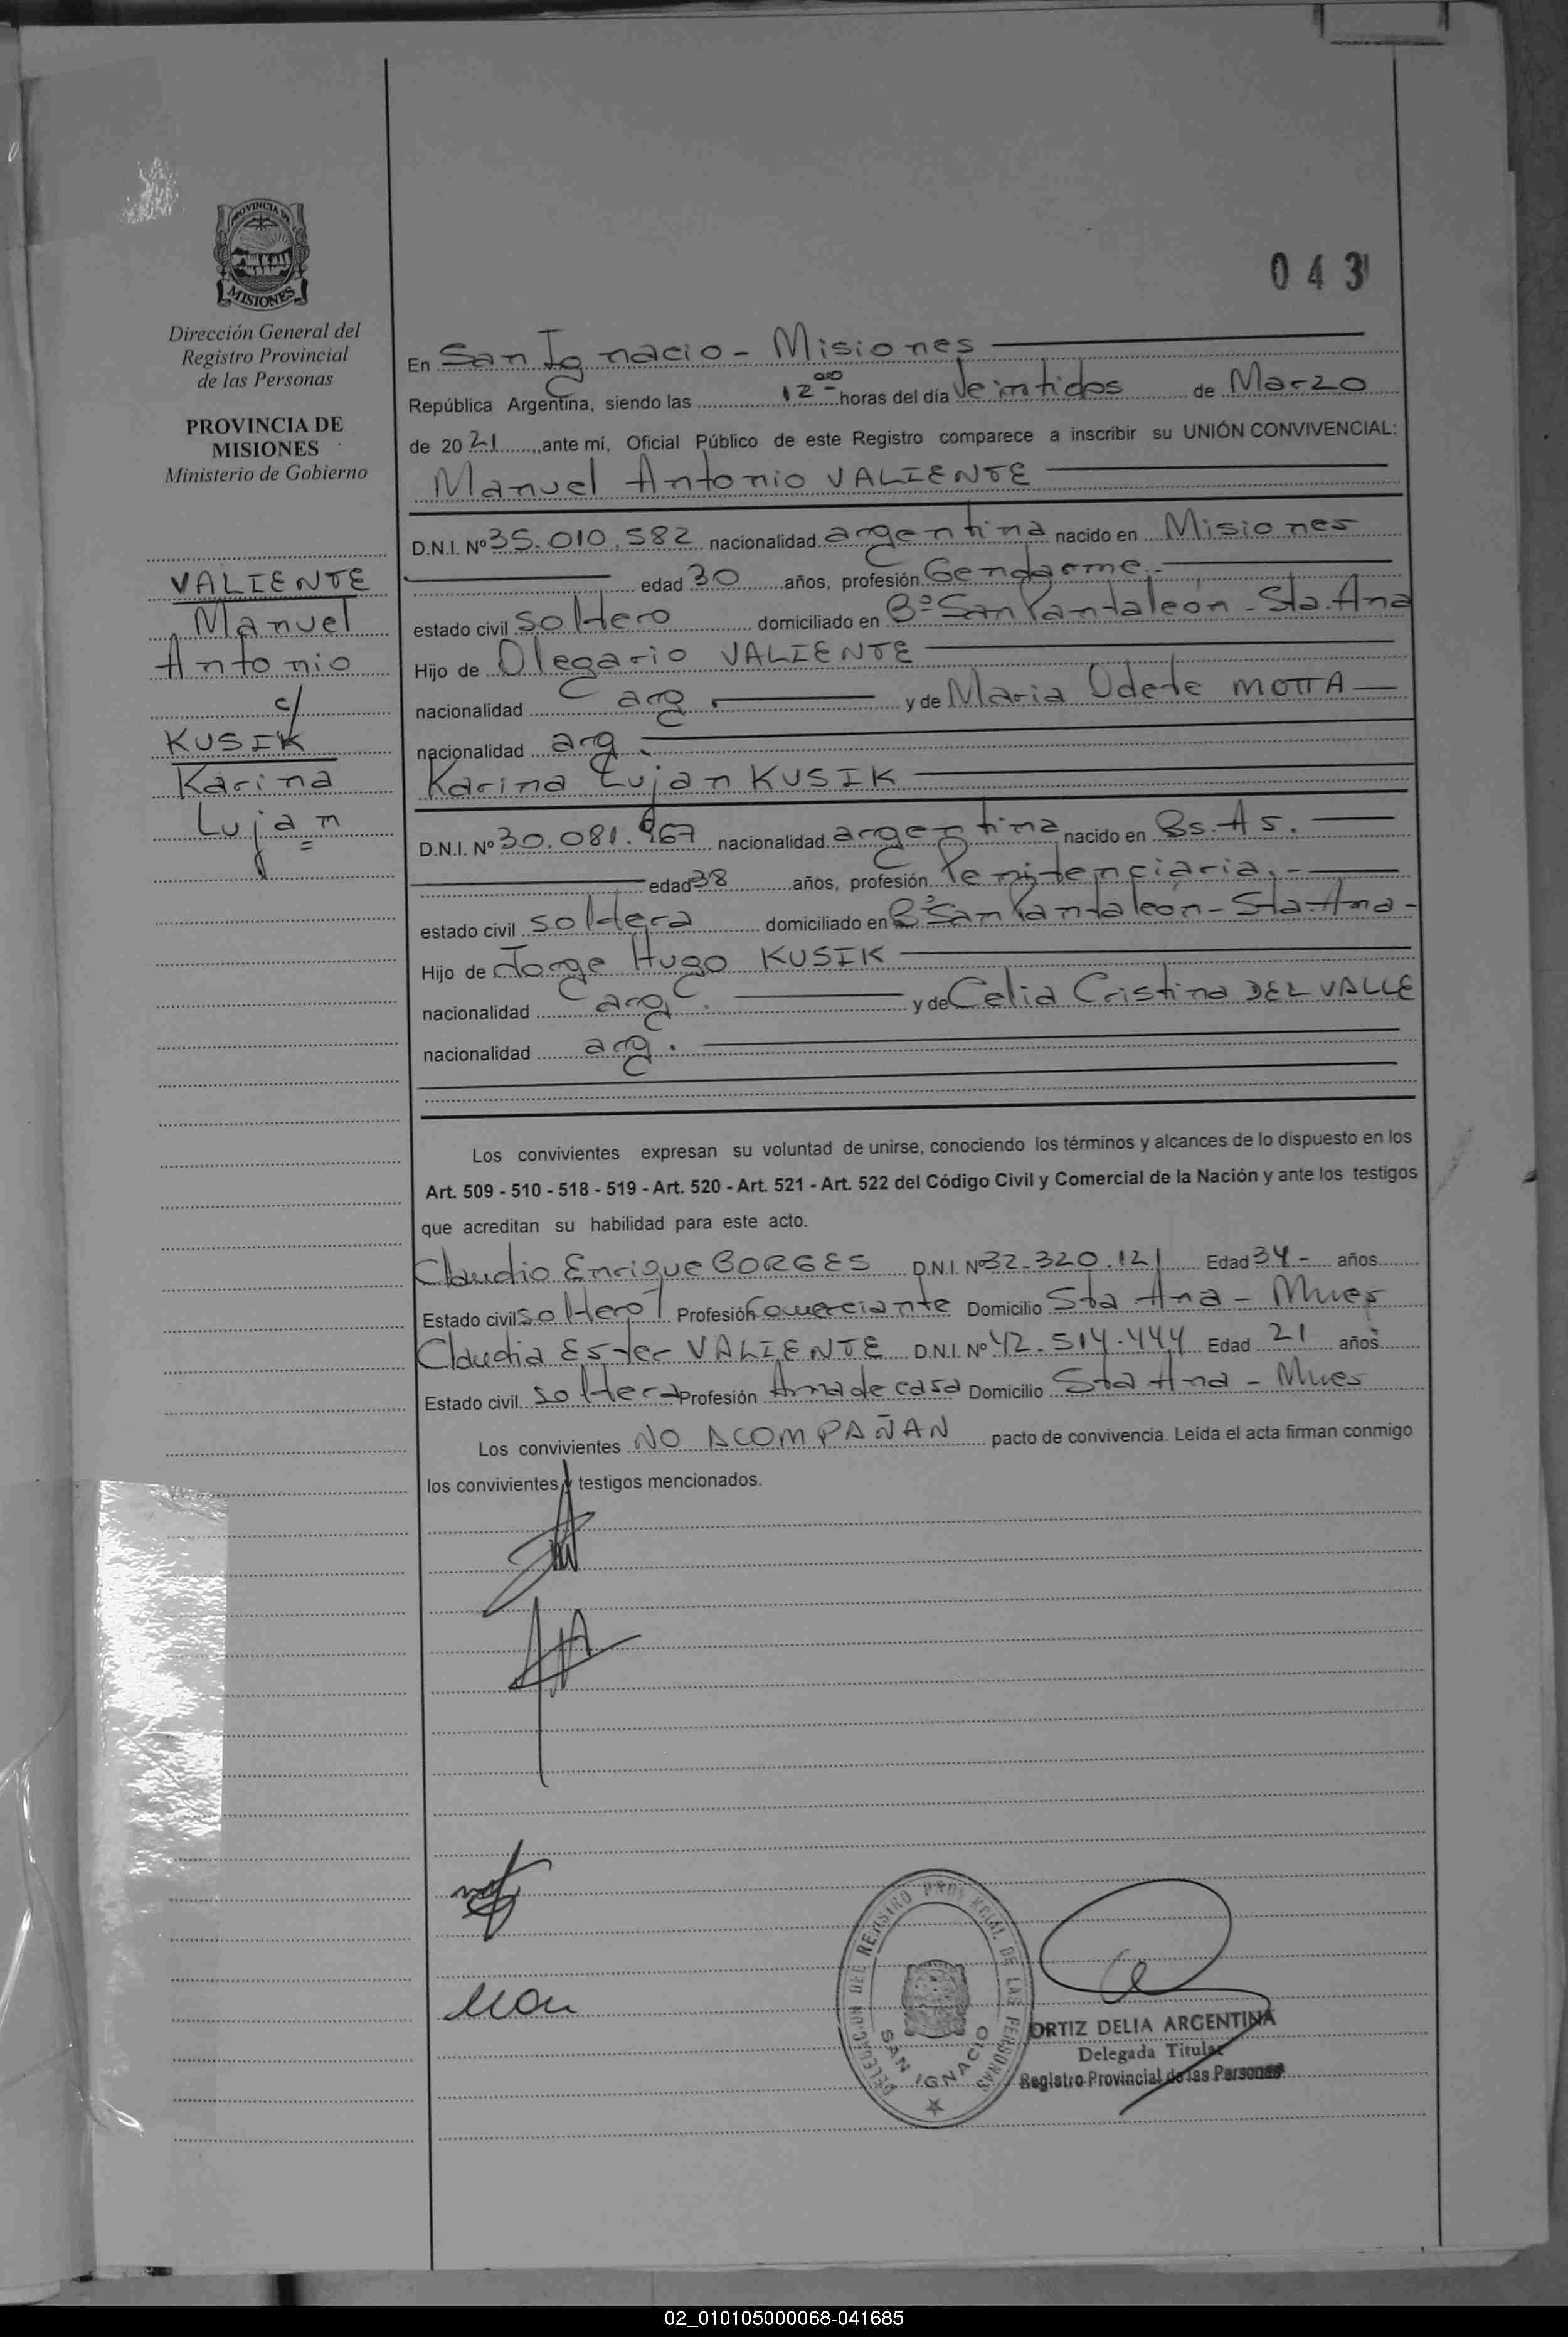 PROVINCIA DE
MISIONES
Dirección General del
Registro Provincial
de las Personas
PROVINCIA DE
MISIONES
Ministerio de Gobierno
VALIENTE
Manuel
Antonio
c/
KUSIK
Karina
Lujan
043
En San Ignacio - Misiones
República Argentina, siendo las 12 horas del día Veintidos de Marzo
de 2021, ante mí, Oficial Público de este Registro comparece a inscribir su UNIÓN CONVIVENCIAL:
Manuel Antonio VALIENTE
D.N.I. Nº 35.010.582 nacionalidad argentina nacido en Misiones
edad 30 años, profesión Gendarme.-
estado civil soltero domiciliado en Bº San Pantaleón - Sta. Ana
Hijo de Olegario VALIENTE
nacionalidad arg y de Maria Odete MOTTA
nacionalidad arg.
Karina Lujan KUSIK
D.N.I. Nº 30.081.967 nacionalidad argentina nacido en Bs. As.
edad 38 años, profesión Penitenciaria.-
estado civil soltera domiciliado en Bº San Pantaleón - Sta. Ana -
Hijo de Jorge Hugo KUSIK
nacionalidad arg. y de Celia Cristina DEL VALLE
nacionalidad arg.
Los convivientes expresan su voluntad de unirse, conociendo los términos y alcances de lo dispuesto en los
Art. 509 - 510 - 518 - 519 - Art. 520 - Art. 521 - Art. 522 del Código Civil y Comercial de la Nación y ante los testigos
que acreditan su habilidad para este acto.
Claudio Enrique BORGES D.N.I. Nº 32.320.121 Edad 34- años
Estado civil soltero Profesión Comerciante Domicilio Sta Ana - Mnes
Claudia Ester VALIENTE D.N.I. Nº 42.514.444 Edad 21 años
Estado civil soltera Profesión Ama de casa Domicilio Sta Ana - Mnes
Los convivientes NO ACOMPAÑAN pacto de convivencia. Leida el acta firman conmigo
los convivientes y testigos mencionados.
DELEGACION DEL REGISTRO PROVINCIAL DE LAS PERSONAS
SAN IGNACIO
ORTIZ DELIA ARGENTINA
Delegada Titular
Registro Provincial de las Personas
02_010105000068-041685